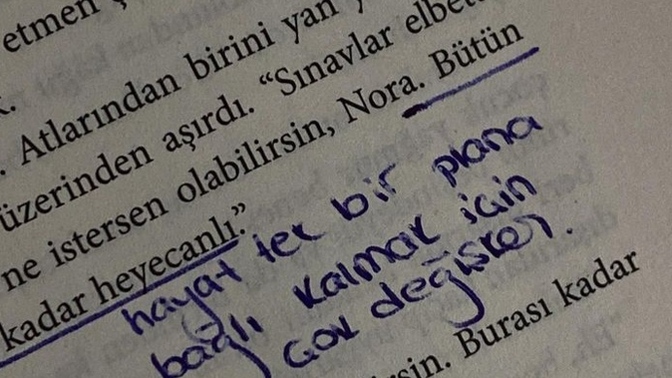 etmen
Atlarından birini yan
üzerinden aşırdı. “Sınavlar
ne istersen olabilirsin, Nora. Bütün
kadar heyecanlı.”
hayat tek bir plana
bağlı kalmak için
çok değişken.
Burası kadar